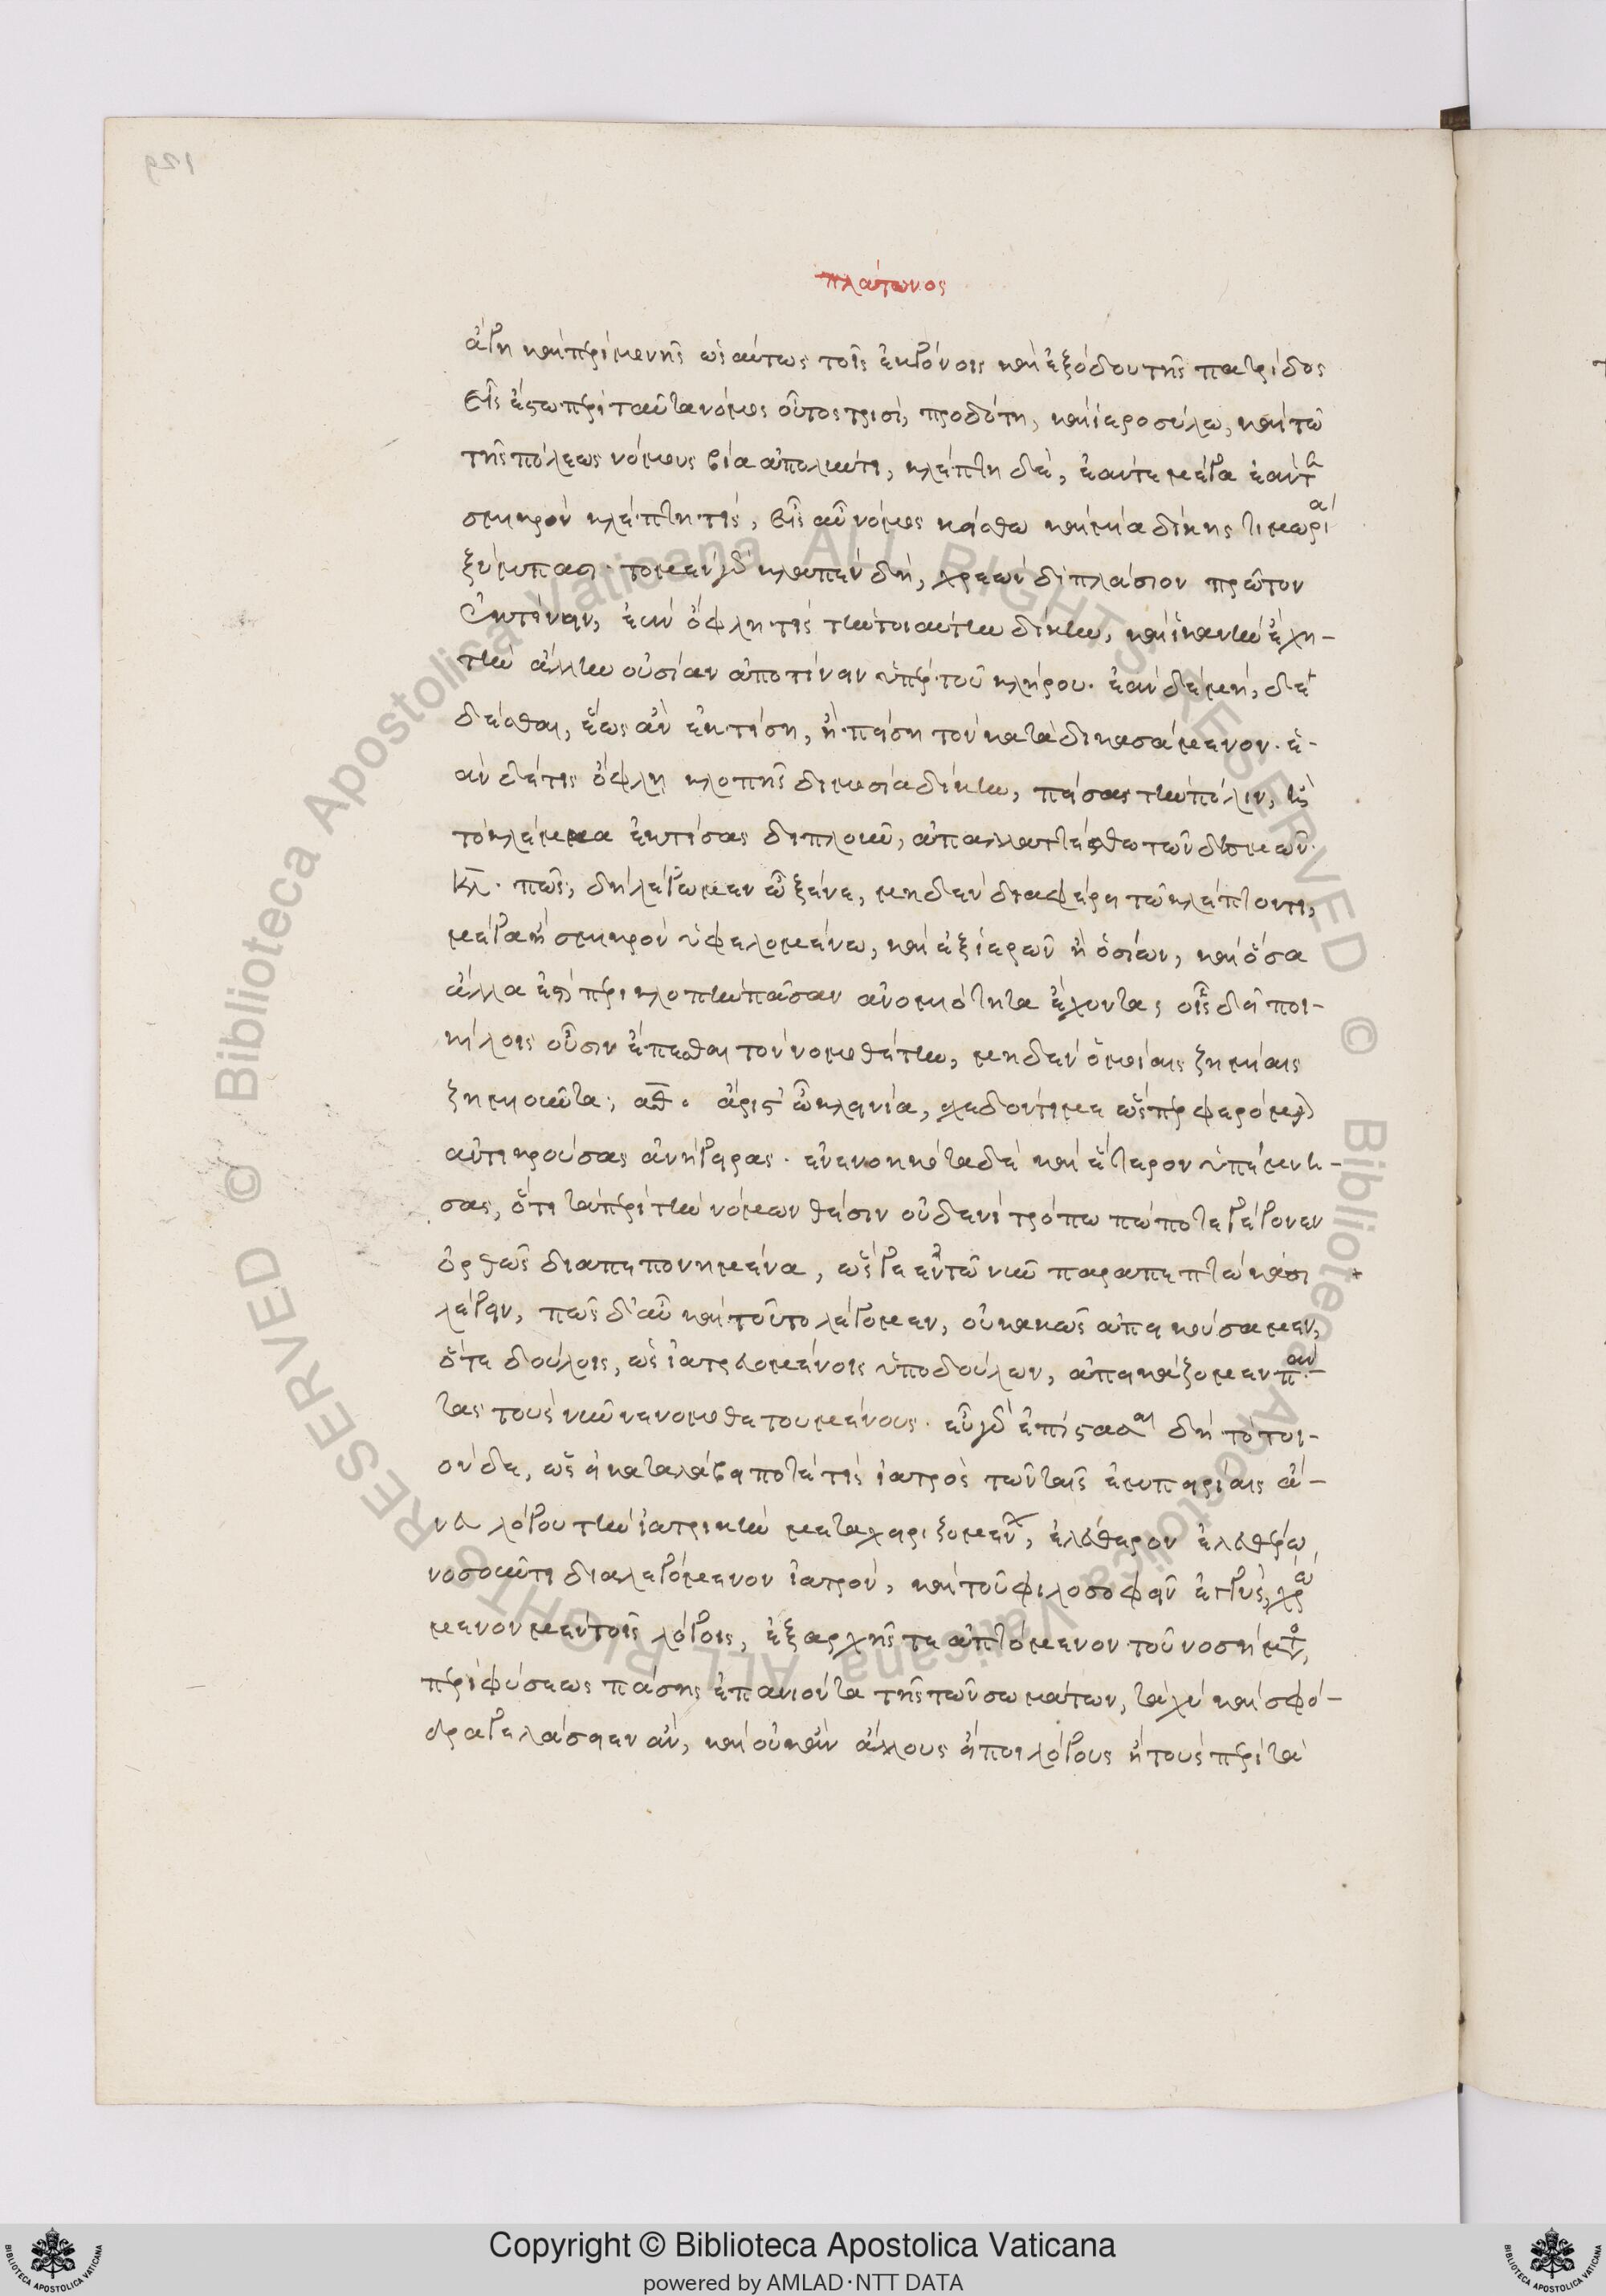 129
πλάτωνος
ἄγη καὶ περὶ μονῆς ὡσαύτως τοῖς ἐκγόνοις καὶ ἐξόδου τῆς πατρίδος
εἷς ἔστω περὶ ταῦτα νόμος οὗτος τρισί, προδότη, καὶ ἱεροσύλω, καὶ τῶ
τῆς πόλεως νόμους βία ἀπολλύντι, κλέπτη δὲ, ἐάν τε μέγα ἐάν τε
σμικρὸν κλέπτη τίς, εἷς αὖ νόμος κείσθω καὶ μία δίκης τιμωρία
ξύμπασι· τὸ μὲν γὰρ κλαπὲν δὴ, χρεὼν διπλάσιον πρῶτον
ἐκτίνειν, ἐὰν ὄφλη τίς τὴν τοιαύτην δίκην, καὶ ἱκανὴν ἔχη-
τὴν ἄλλην οὐσίαν ἀποτίνειν ὑπὲρ τοῦ κλήρου· ἐὰν δὲ μή, δε
δέσθαι, ἕως ἂν ἐκτίση, ἢ πείση τὸν καταδικασάμενον· ἐ-
ὰν δέ τις ὄφλη κλοπῆς δημοσία δίκην, πείσας τὴν πόλιν, ἢ
τὸ κλέμμα ἐκτίσας διπλοῦν, ἀπαλλαττέσθω τῶν δεσμῶν·
κλ. πῶς, δὴ λέγωμεν ὦ ξένε, μηδὲν διαφέρειν τῶ κλέπτοντι,
μέγα ἢ σμικρὸν ὑφελομένω, καὶ ἐξ ἱερῶν ἢ ὁσίων, καὶ ὅσα
ἄλλα ἐστὶ περὶ κλοπὴν πᾶσαν ἀνομοιότητα ἔχοντα; οἷς δεῖ ποι-
κίλοις οὖσιν ἕπεσθαι τὸν νομοθέτην, μηδὲν ὁμοίαις ζημίαις
ζημιοῦντα; αθ. ἄριστ' ὦ κλεινία, σχεδόν τι με ὥσπερ φερόμενον
ἀντικρούσας ἀνήγειρας· ἐννενοηκότα δὲ καὶ ἕτερον ὑπέμνη-
σας, ὅτι τὰ περὶ τὴν νόμων θέσιν οὐδενὶ τρόπω πώποτε γέγονεν
ὀρθῶς διαπεπονημένα, ὥς γε ἐν τῶ νῦν παραπεπτωκότι
λέγειν, πῶς δ' αὖ καὶ τοῦτο λέγομεν, οὐ κακῶς ἀπεικάσαμεν,
ὅτε δούλοις, ὡς ἰατρευομένοις ὑπὸ δούλων, ἀπεικάζομεν πάν-
τας τοὺς νῦν νενομοθετουμένους· εὖ γὰρ ἐπίστασθαι δὴ τὸ τοι-
όνδε, ὡς εἰ καταλάβει ποτέ τις ἰατρὸς τῶν ταῖς ἐμπειρίαις ἄ-
νευ λόγου τὴν ἰατρικὴν μεταχειριζομένων, ἐλεύθερον ἐλευθέρω
νοσοῦντι διαλεγόμενον ἰατρὸν, καὶ τοῦ φιλοσοφεῖν ἐγγὺς, χρώ
μενον μὲν τοῖς λόγοις, ἐξ ἀρχῆς τε ἁπτόμενον τοῦ νοσήματος,
περὶ φύσεως πάσης ἐπανιόντα τῆς τῶν σωμάτων, ταχὺ καὶ σφό-
δρα γελάσειεν ἂν, καὶ οὐκ ἂν ἄλλους εἴποι λόγους ἢ τοὺς περὶ τὰ
Copyright © Biblioteca Apostolica Vaticana
powered by AMLAD·NTT DATA